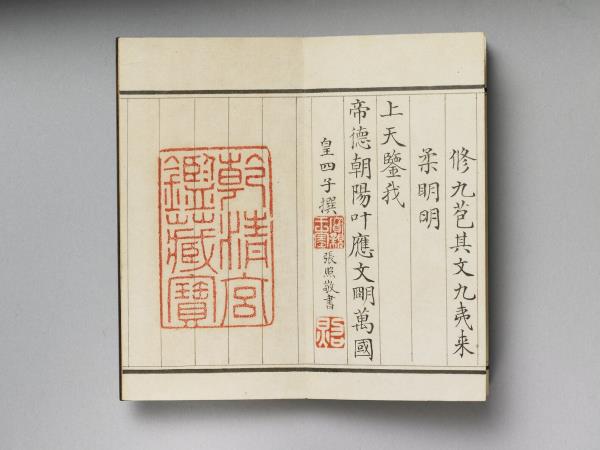 修九苞其文九夷来
柔明明
上天鑒我
帝德朝陽叶應文明萬國
皇四子撰 張照敬書
乾清宮
鑑藏寶